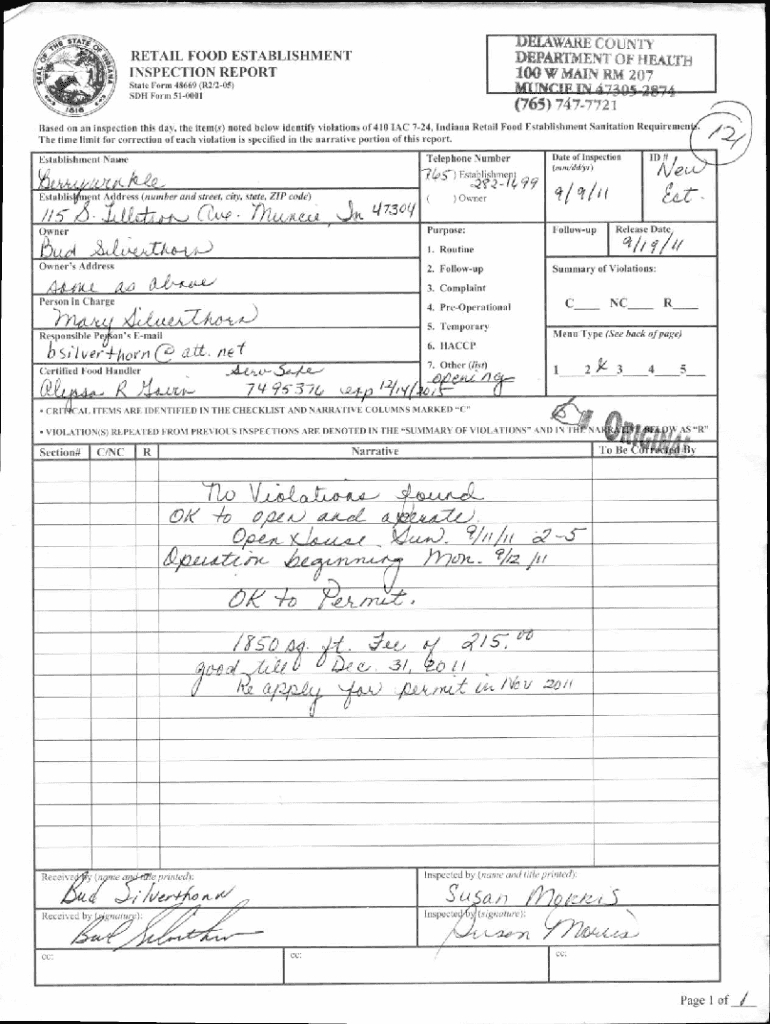 SEAL OF THE STATE OF INDIANA
1816
RETAIL FOOD ESTABLISHMENT
INSPECTION REPORT
State Form 48669 (R2/2-05)
SDH Form 51-0001
DELAWARE COUNTY
DEPARTMENT OF HEALTH
100 W MAIN RM 207
MUNCIE IN 47305-2874
(765) 747-7721
Based on an inspection this day, the item(s) noted below identify violations of 410 IAC 7-24, Indiana Retail Food Establishment Sanitation Requirements.
The time limit for correction of each violation is specified in the narrative portion of this report.
121
Establishment Name
Berrywinkle
Telephone Number
(765) Establishment
282-1699
( ) Owner
Date of Inspection
(mm/dd/yr)
9/9/11
ID #
New
Est.
Establishment Address (number and street, city, state, ZIP code)
115 S. Tillotson Ave. Muncie, In 47304
Owner
Bud Silverthorn
Purpose:
Follow-up
Release Date
9/19/11
Owner's Address
same as above
1. Routine
2. Follow-up
3. Complaint
4. Pre-Operational
5. Temporary
6. HACCP
7. Other (list)
opening
Summary of Violations:
C___ NC___ R___
Person in Charge
Mary Silverthorn
Responsible Person's E-mail
bsilverthorn@att.net
Menu Type (See back of page)
1___ 2 X 3___ 4___ 5___
Certified Food Handler
Serv Safe
R 7495376 exp 12/14/2015
• CRITICAL ITEMS ARE IDENTIFIED IN THE CHECKLIST AND NARRATIVE COLUMNS MARKED "C"
• VIOLATION(S) REPEATED FROM PREVIOUS INSPECTIONS ARE DENOTED IN THE "SUMMARY OF VIOLATIONS" AND IN THE NARRATIVE BELOW AS "R"
ORIGINAL
Section# C/NC R Narrative To Be Corrected By
No Violations found
OK to open and operate
Open House Sun. 9/11/11 2-5
Operation beginning Mon. 9/12/11
OK to Permit.
1850 sq. ft. Fee of 215.00
good till Dec. 31, 2011
Re apply for permit in Nov 2011
Received by (name and title printed):
Bud Silverthorn
Inspected by (name and title printed):
Susan Morris
Received by (signature):
Bud Silverthorn
Inspected by (signature):
Susan Morris
cc:
cc:
cc:
Page 1 of 1